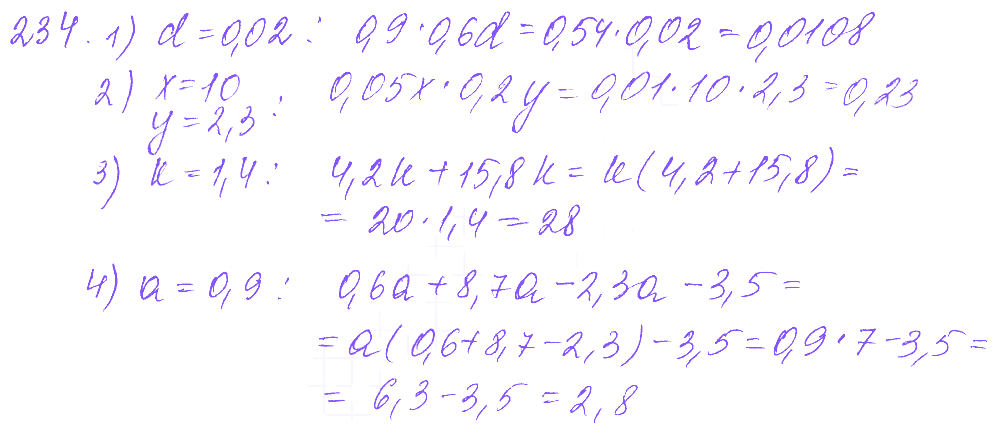 234. 1) d = 0,02 : 0,9 · 0,6d = 0,54 · 0,02 = 0,0108
2) x = 10
y = 2,3 : 0,05x · 0,2y = 0,01 · 10 · 2,3 = 0,23
3) k = 1,4 : 4,2k + 15,8k = k(4,2 + 15,8) =
= 20 · 1,4 = 28
4) a = 0,9 : 0,6a + 8,7a - 2,3a - 3,5 =
= a(0,6 + 8,7 - 2,3) - 3,5 = 0,9 · 7 - 3,5 =
= 6,3 - 3,5 = 2,8